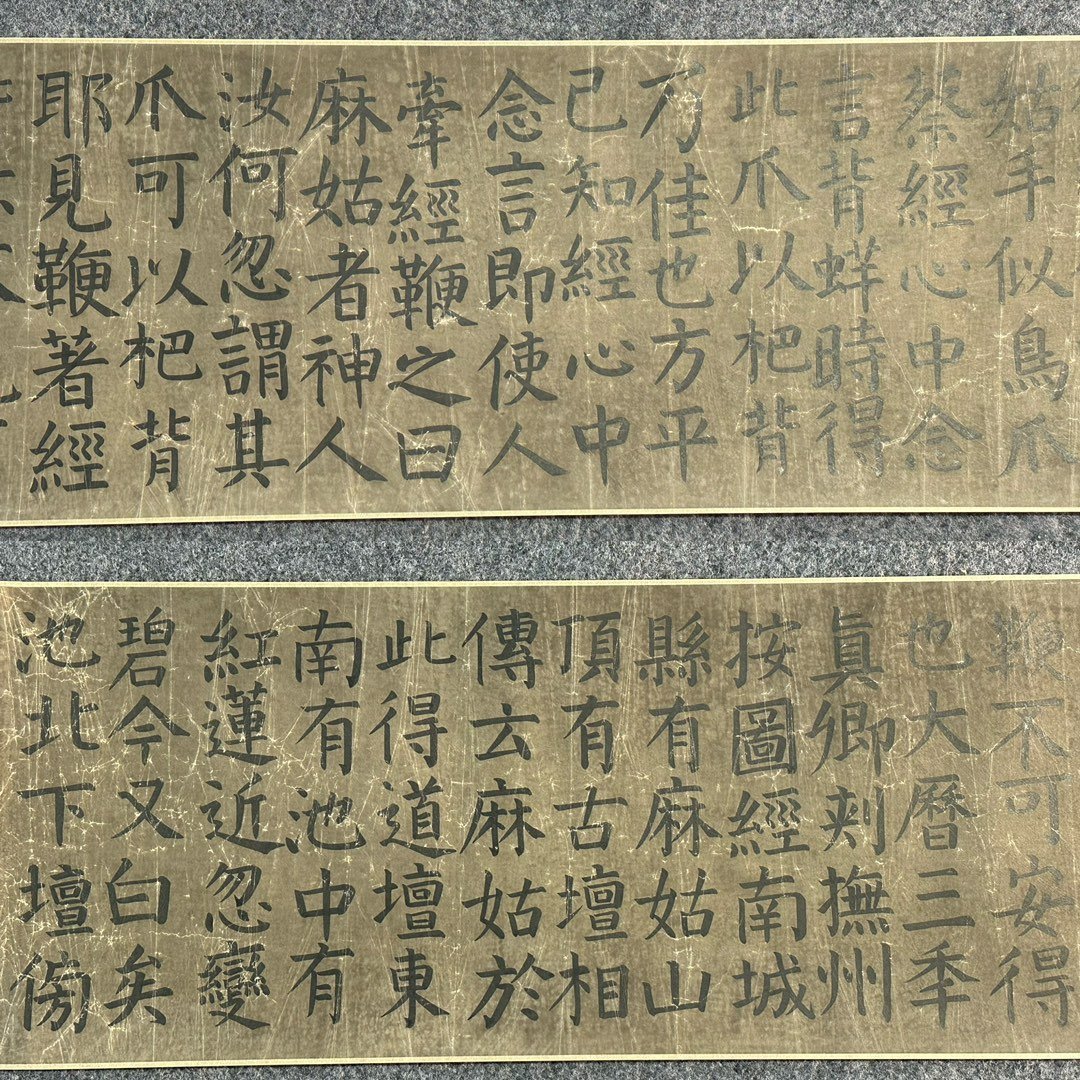 姑手似鳥爪
蔡經心中念
言背蛘時得
此爪以杷背
乃佳也方平
已知經心中
念言即使人
牽經鞭之曰
麻姑者神人
汝何忽謂其
爪可以杷背
耶見鞭著經
鞭不可妄得
也大曆三秊
眞卿刺撫州
按圖經南城
縣有麻姑山
頂有古壇相
傳云麻姑於
此得道壇東
南有池中有
紅蓮近忽變
碧今又白矣
池北下壇傍